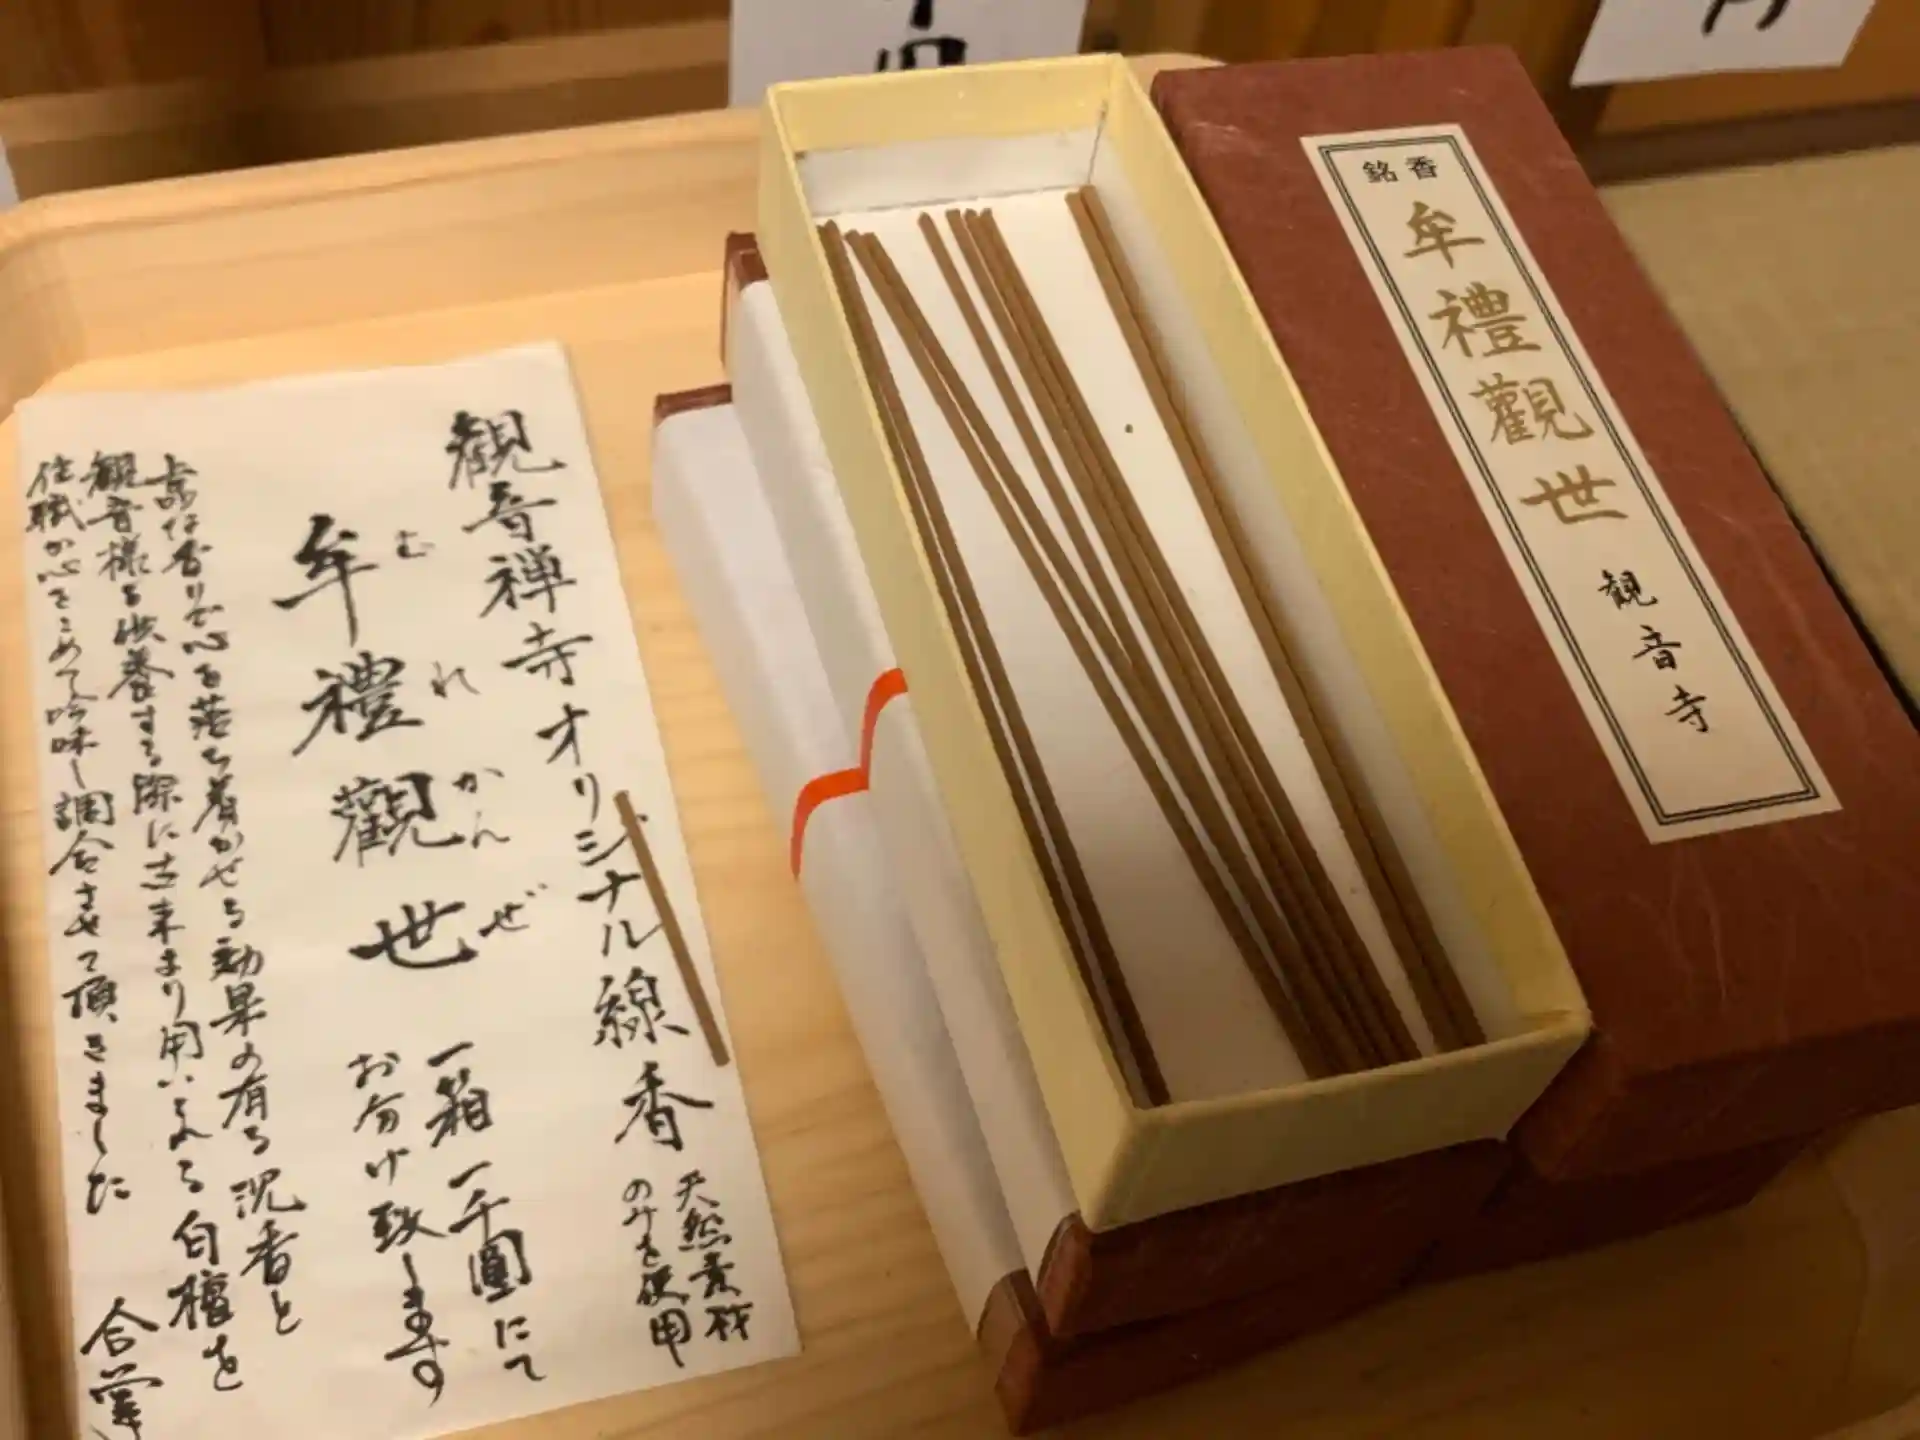 観音禅寺オリジナル線香
天然素材
のみを使用
牟禮觀世
むれかんぜ
一箱一千圓にて
お分け致します
上品な香りで心を落ち着かせる効果の有る沈香と
観音様を供養する際に古来より用いられる白檀を
住職が心をこめて吟味し調合させて頂きました
合掌
銘香
牟禮觀世
観音寺
円